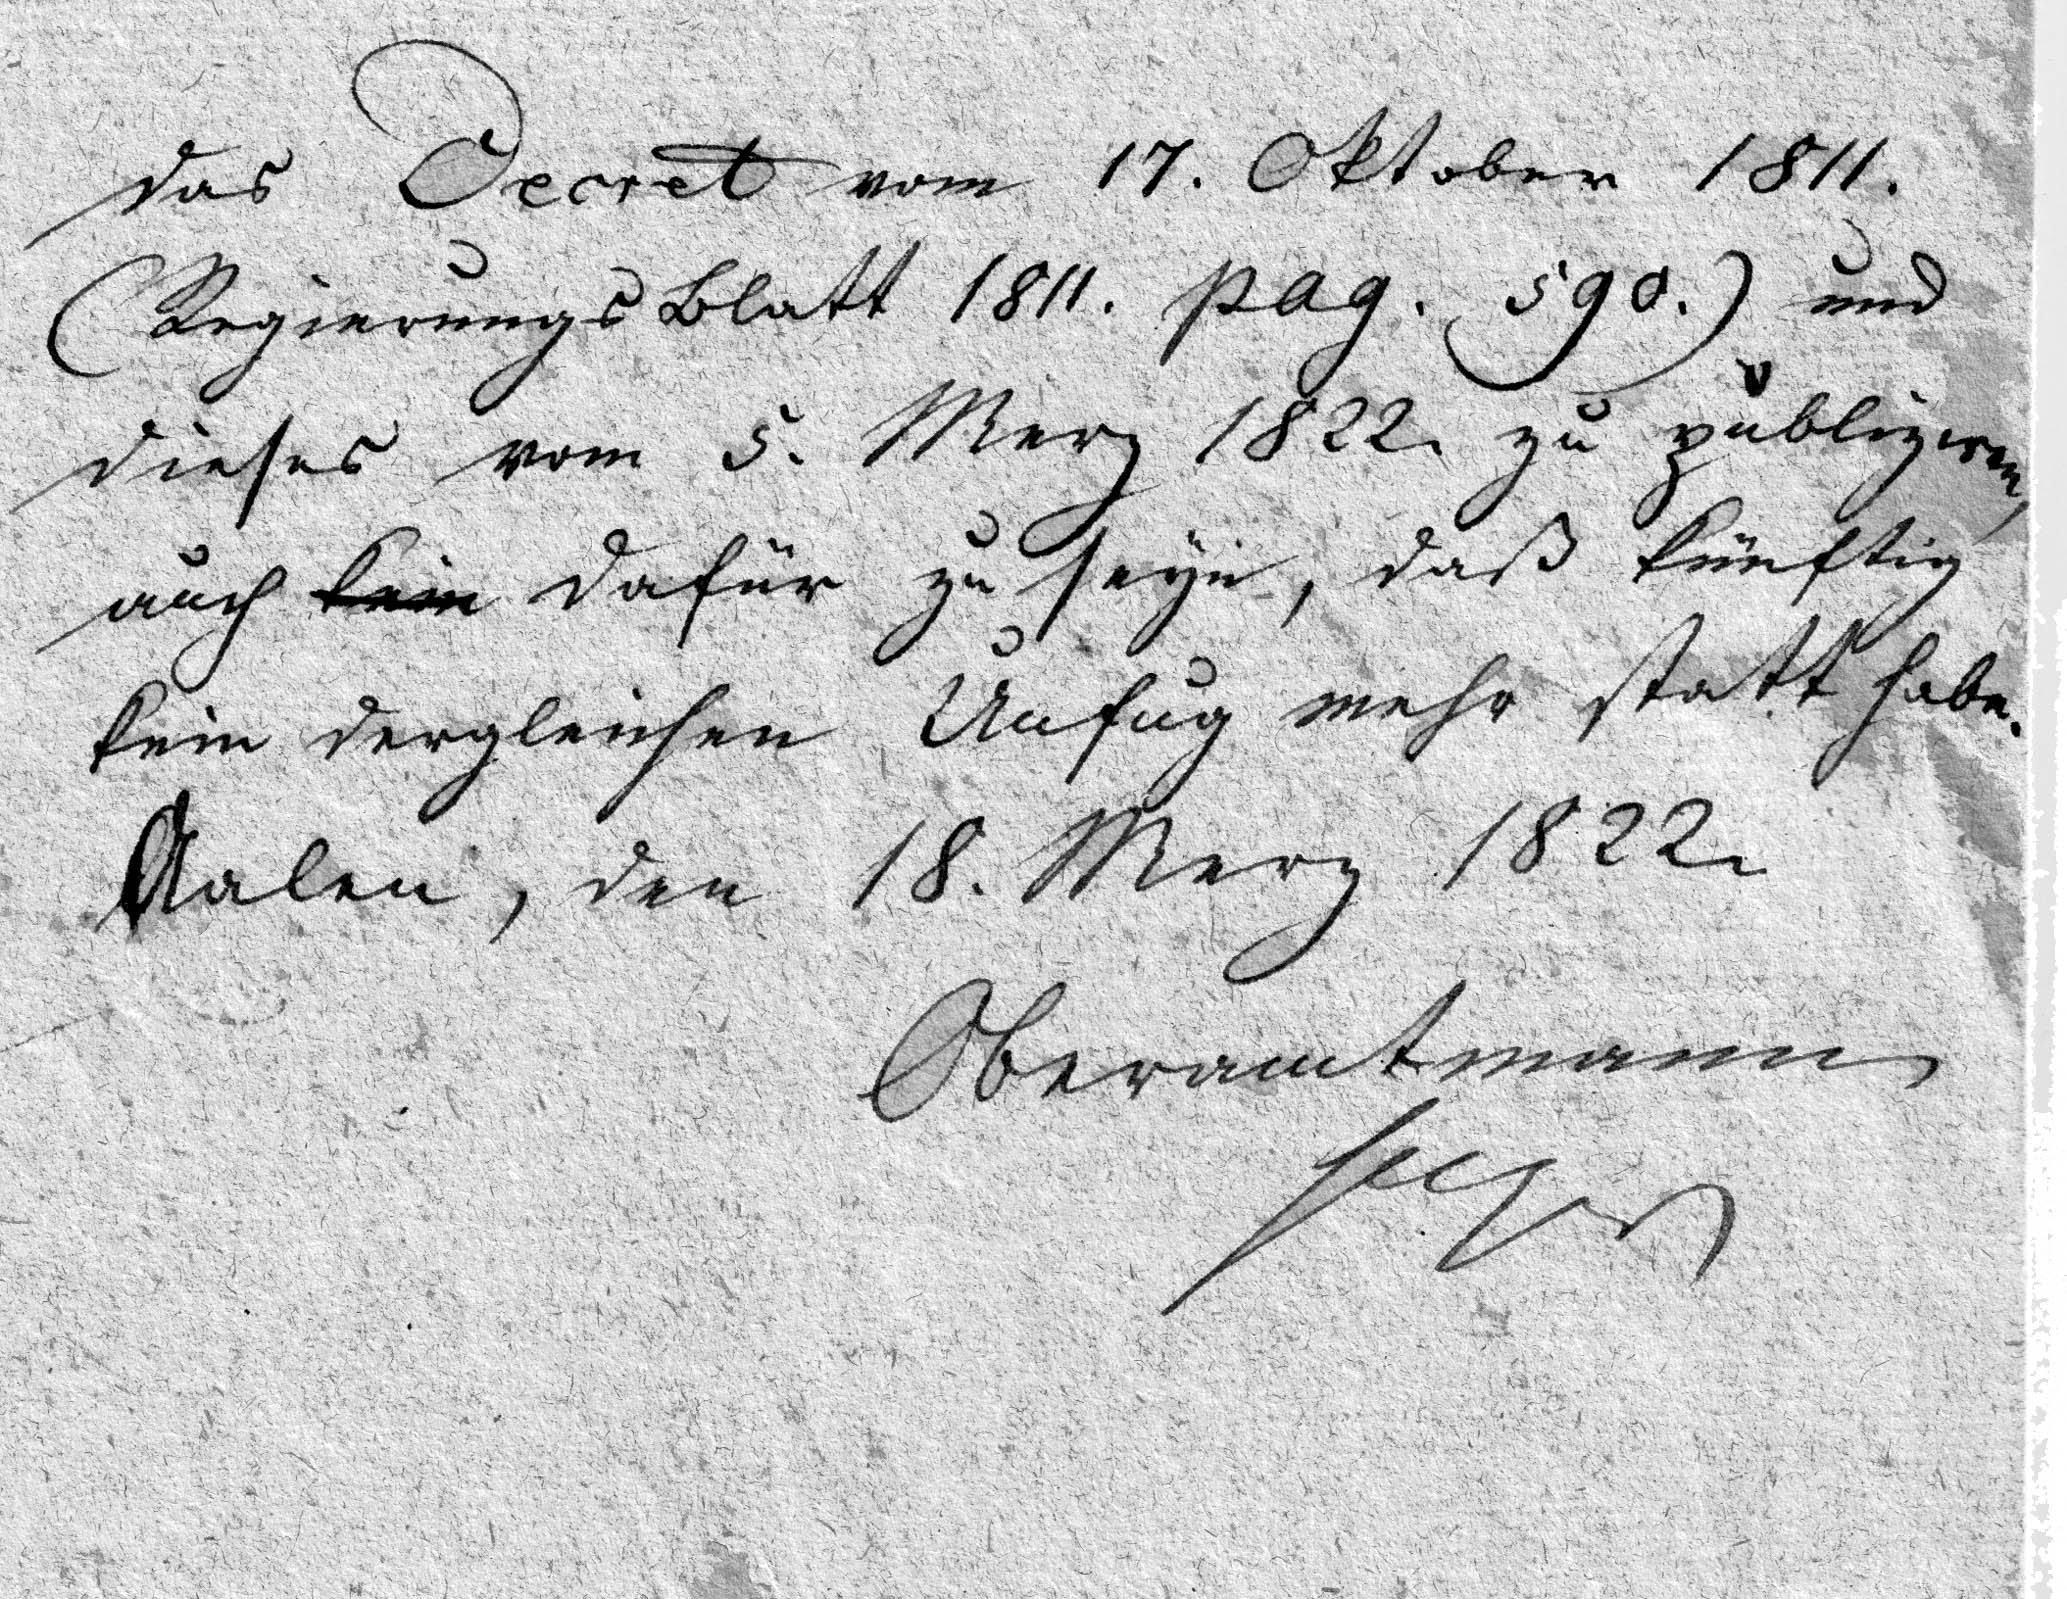 das Decret vom 17. Oktober 1811.
(RegierungsBlatt 1811. pag. 590.) und
dieses vom 5. Merz 1822. zu publiziren,
auch kein dafür zu seyn, daß künftig
kein dergleichen Unfug mehr statt habe.
Aalen, den 18. Merz 1822.
Oberamtmann